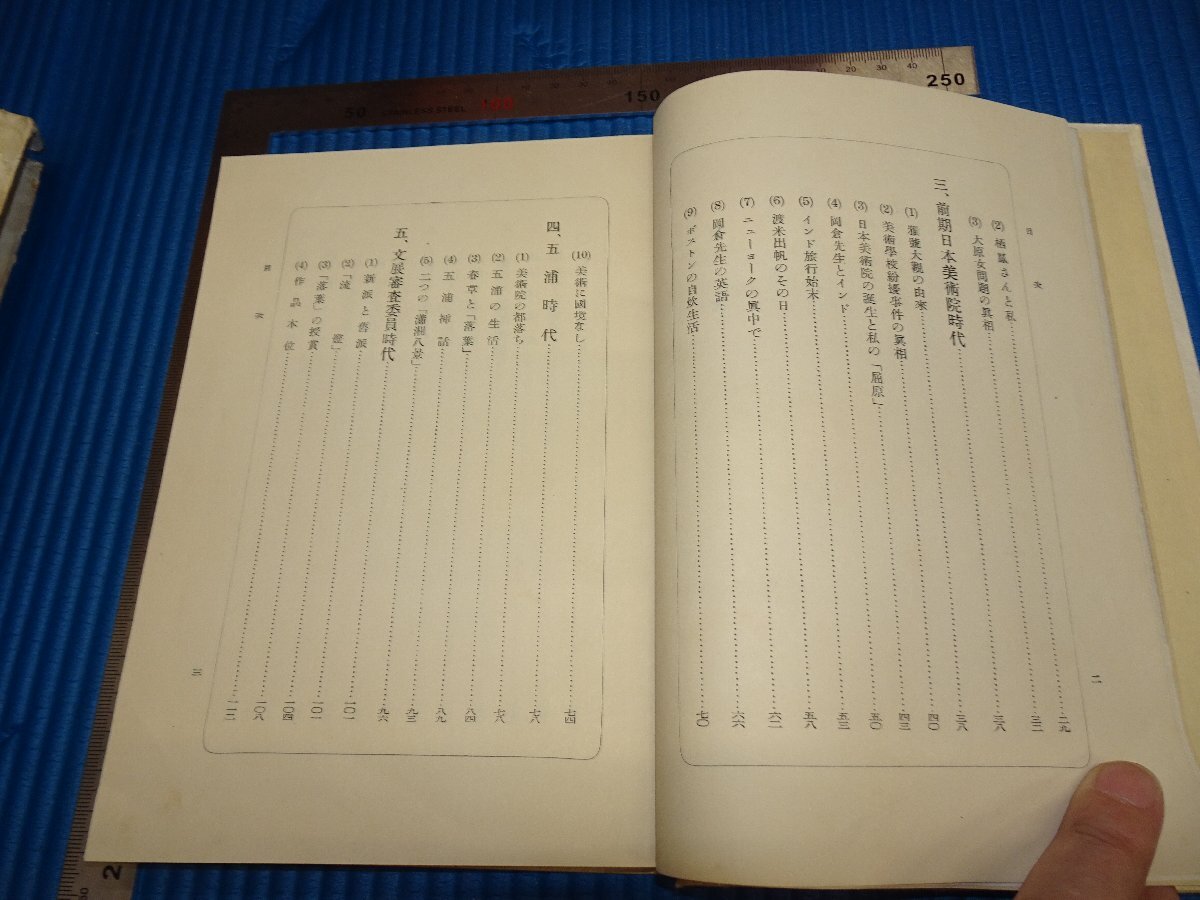 目次
二
(2) 栖鳳さんと私……二九
(3) 大原女問題の眞相……三二
三、前期日本美術院時代……三八
(1) 雅號大觀の由來……三八
(2) 美術學校紛擾事件の眞相……四〇
(3) 日本美術院の誕生と私の「屈原」……四三
(4) 岡倉先生とインド……五〇
(5) インド旅行始末……五三
(6) 渡米出帆のその日……五八
(7) ニューヨークの眞中で……六二
(8) 岡倉先生の英語……六六
(9) ボストンの自炊生活……七〇
(10) 美術に國境なし……七四
四、五浦時代……七八
(1) 美術院の都落ち……七八
(2) 五浦の生活……八四
(3) 春草と「落葉」……八九
(4) 五浦挿話……九三
(5) 二つの「瀟湘八景」……九六
五、文展審査委員時代……一〇一
(1) 新派と舊派……一〇一
(2) 「流燈」……一〇四
(3) 「落葉」の授賞……一〇八
(4) 作品本位……一一二
目次
三
50
STAINLESS STEEL
100
150
250